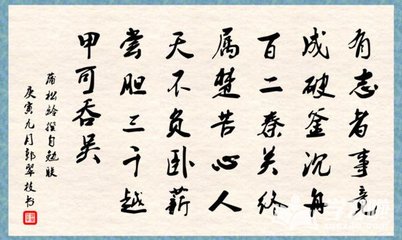 有志者事竟
成破釜沉舟
百二秦关终
属楚苦心人
天不负卧薪
尝胆三千越
甲可吞吴
蒲松龄撰自勉联
庚寅九月郭翠枝书